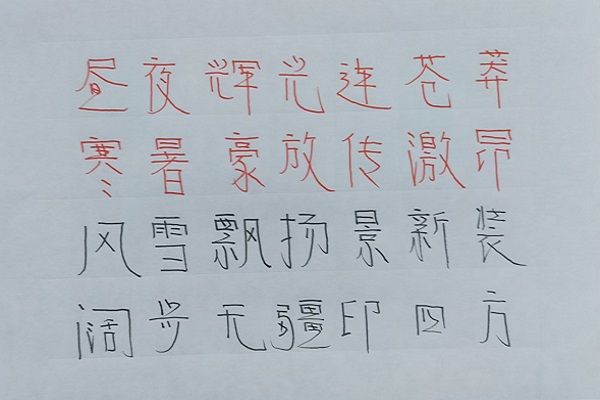 昼夜辉光连苍莽
寒暑豪放传激昂
风雪飘扬景新装
阔步无疆印四方